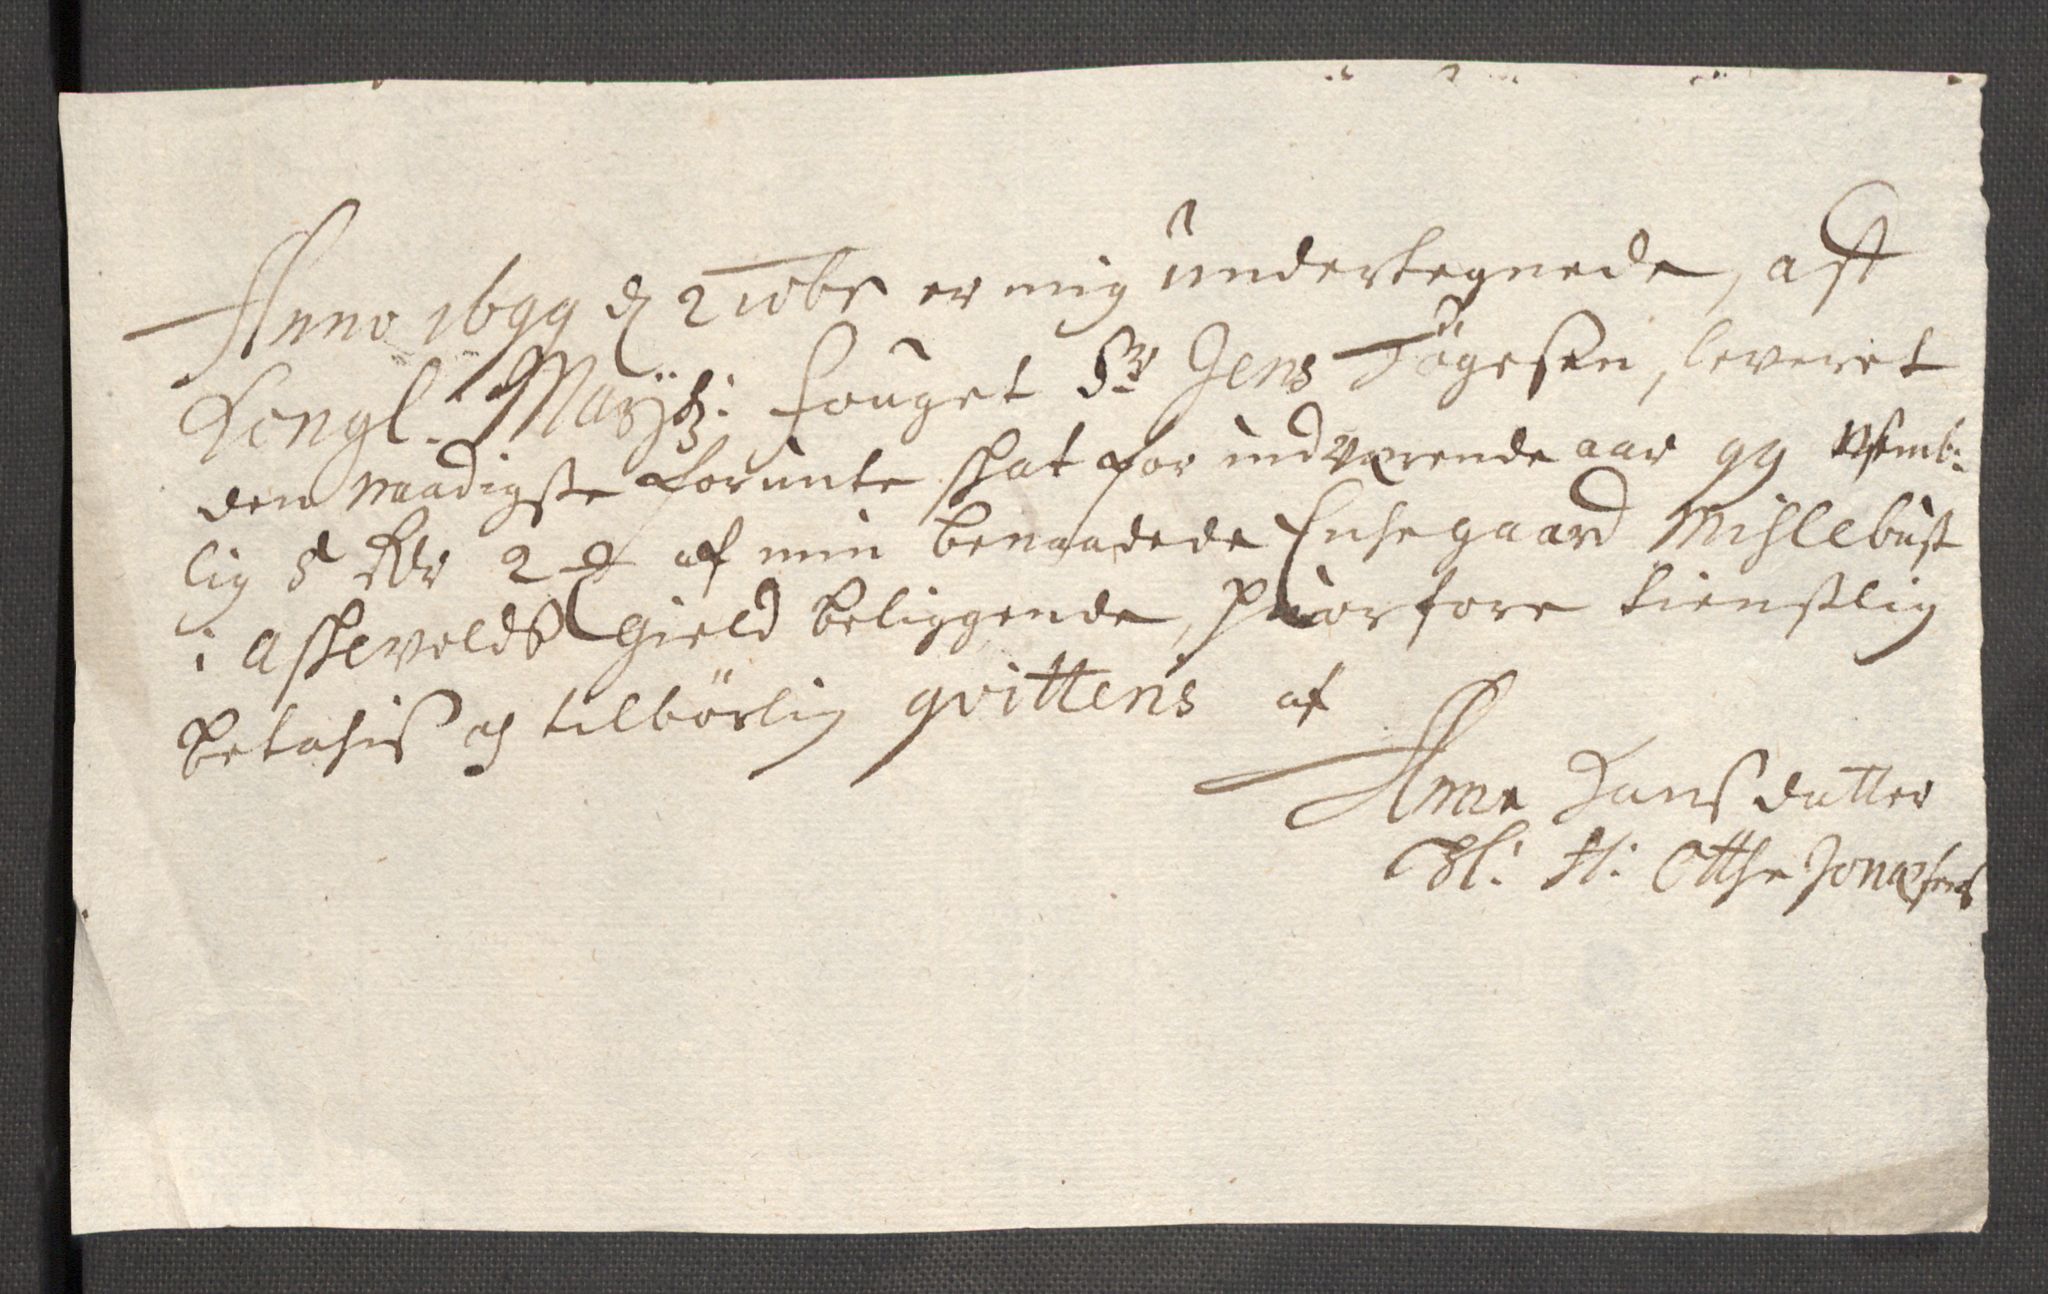 Anno 1699 d 2 10br er mig undertegnede, aff
Kongl. Mayts: fouget Sr Jens Tögesen, leveret
den naadigste forunte skat for indværende aar 99 Nemb:
lig 5 Rdr 2 af min benaadede Enchegaard Michlebust
i Askevolds Gield beliggende, hvorfore tienstlig
betachis og tilbörlig qvittens af
Anne Hansdatter
Sl: H: Otthe Jonæsens